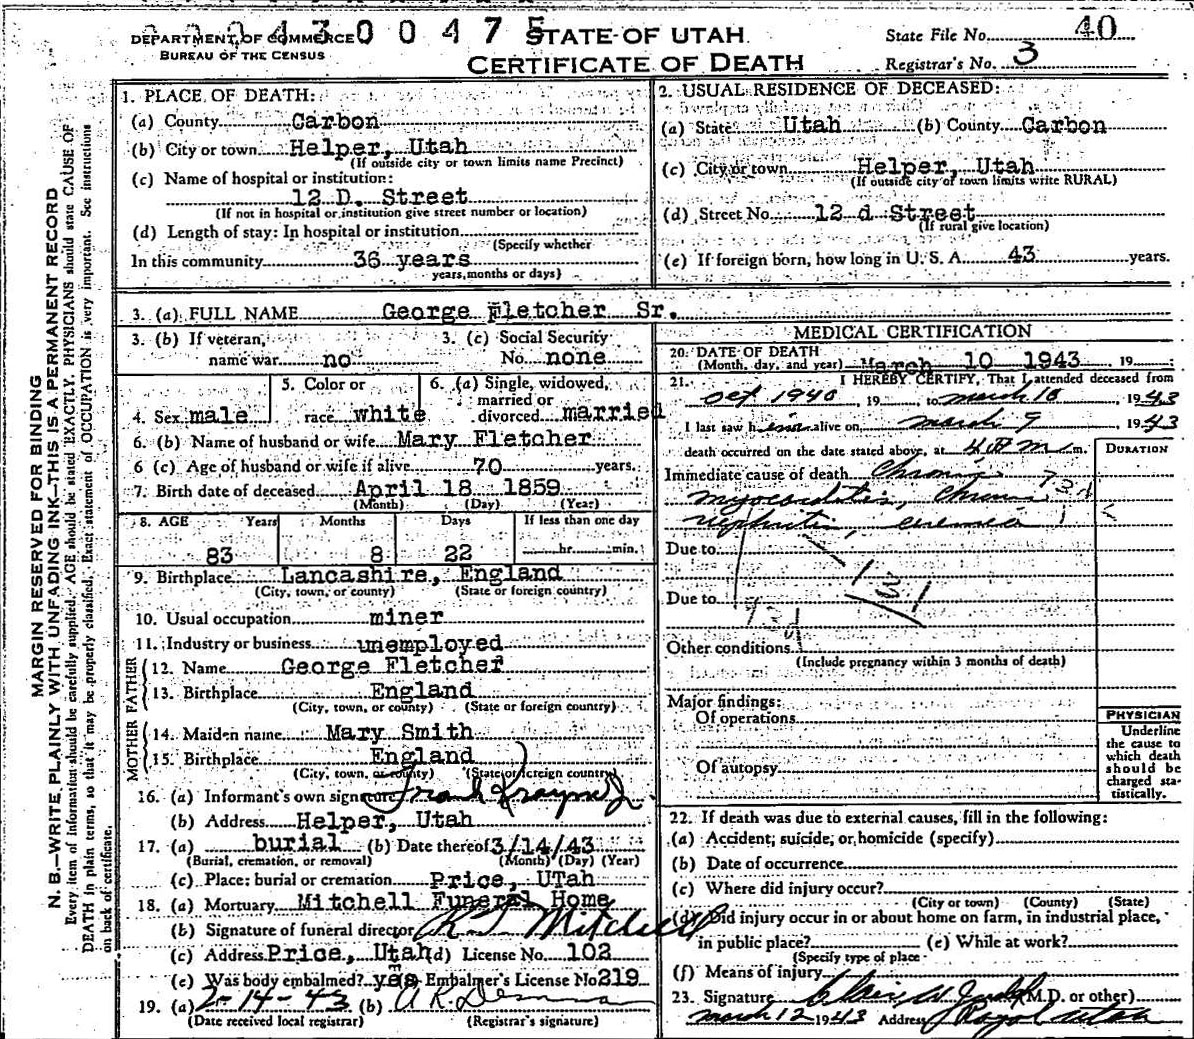 0 0 4 3 0 0 4 7 5
DEPARTMENT OF COMMERCE
BUREAU OF THE CENSUS
STATE OF UTAH
CERTIFICATE OF DEATH
State File No. 40
Registrar's No. 3
MARGIN RESERVED FOR BINDING
N. B.—WRITE PLAINLY WITH UNFADING INK—THIS IS A PERMANENT RECORD
Every item of information should be carefully supplied. AGE should be stated EXACTLY. PHYSICIANS should state CAUSE OF
DEATH in plain terms, so that it may be properly classified. Exact statement of OCCUPATION is very important. See instructions
on back of certificate.
1. PLACE OF DEATH:
(a) County Carbon
(b) City or town Helper, Utah
(If outside city or town limits name Precinct)
(c) Name of hospital or institution:
12 D. Street
(If not in hospital or institution give street number or location)
(d) Length of stay: In hospital or institution
(Specify whether
In this community 36 years
years, months or days)
2. USUAL RESIDENCE OF DECEASED:
(a) State Utah (b) County Carbon
(c) City or town Helper, Utah
(If outside city or town limits write RURAL)
(d) Street No. 12 d Street
(If rural give location)
(e) If foreign born, how long in U. S. A. 43 years.
3. (a) FULL NAME George Fletcher Sr.
3. (b) If veteran, name war no
3. (c) Social Security No. none
4. Sex male
5. Color or race white
6. (a) Single, widowed, married or divorced married
6. (b) Name of husband or wife Mary Fletcher
6 (c) Age of husband or wife if alive 70 years.
7. Birth date of deceased April 18 1859
(Month) (Day) (Year)
8. AGE Years Months Days If less than one day
83 8 22 hr. min.
9. Birthplace Lancashire, England
(City, town, or county) (State or foreign country)
10. Usual occupation miner
11. Industry or business unemployed
FATHER
12. Name George Fletcher
13. Birthplace England
(City, town, or county) (State or foreign country)
MOTHER
14. Maiden name Mary Smith
15. Birthplace England
(City, town, or county) (State or foreign country)
16. (a) Informant's own signature Frank
(b) Address Helper, Utah
17. (a) burial (b) Date thereof 3/14/43
(Burial, cremation, or removal) (Month) (Day) (Year)
(c) Place: burial or cremation Price, UTah
18. (a) Mortuary Mitchell Funeral Home
(b) Signature of funeral director Mitchell
(c) Address Price, Utah (d) License No. 102
(e) Was body embalmed? yes Embalmer's License No 219
19. (a) 2-14-43 (b)
(Date received local registrar) (Registrar's signature)
MEDICAL CERTIFICATION
20. DATE OF DEATH
(Month, day, and year) March 10 1943 , 19
21. I HEREBY CERTIFY, That I attended deceased from
Oct 1940 , 19 to march 10 , 1943
I last saw him alive on march 9 , 1943
death occurred on the date stated above, at m.
DURATION
Immediate cause of death Chronic
myocarditis, Chronic
nephritis, uremia
Due to
131
Due to
Other conditions
(Include pregnancy within 3 months of death)
Major findings:
Of operations
Of autopsy
PHYSICIAN
Underline
the cause to
which death
should be
charged sta-
tistically.
22. If death was due to external causes, fill in the following:
(a) Accident, suicide, or homicide (specify)
(b) Date of occurrence
(c) Where did injury occur?
(City or town) (County) (State)
(d) Did injury occur in or about home on farm, in industrial place,
in public place? (e) While at work?
(Specify type of place
(f) Means of injury
23. Signature (M.D. or other)
march 12 1943 Address Utah